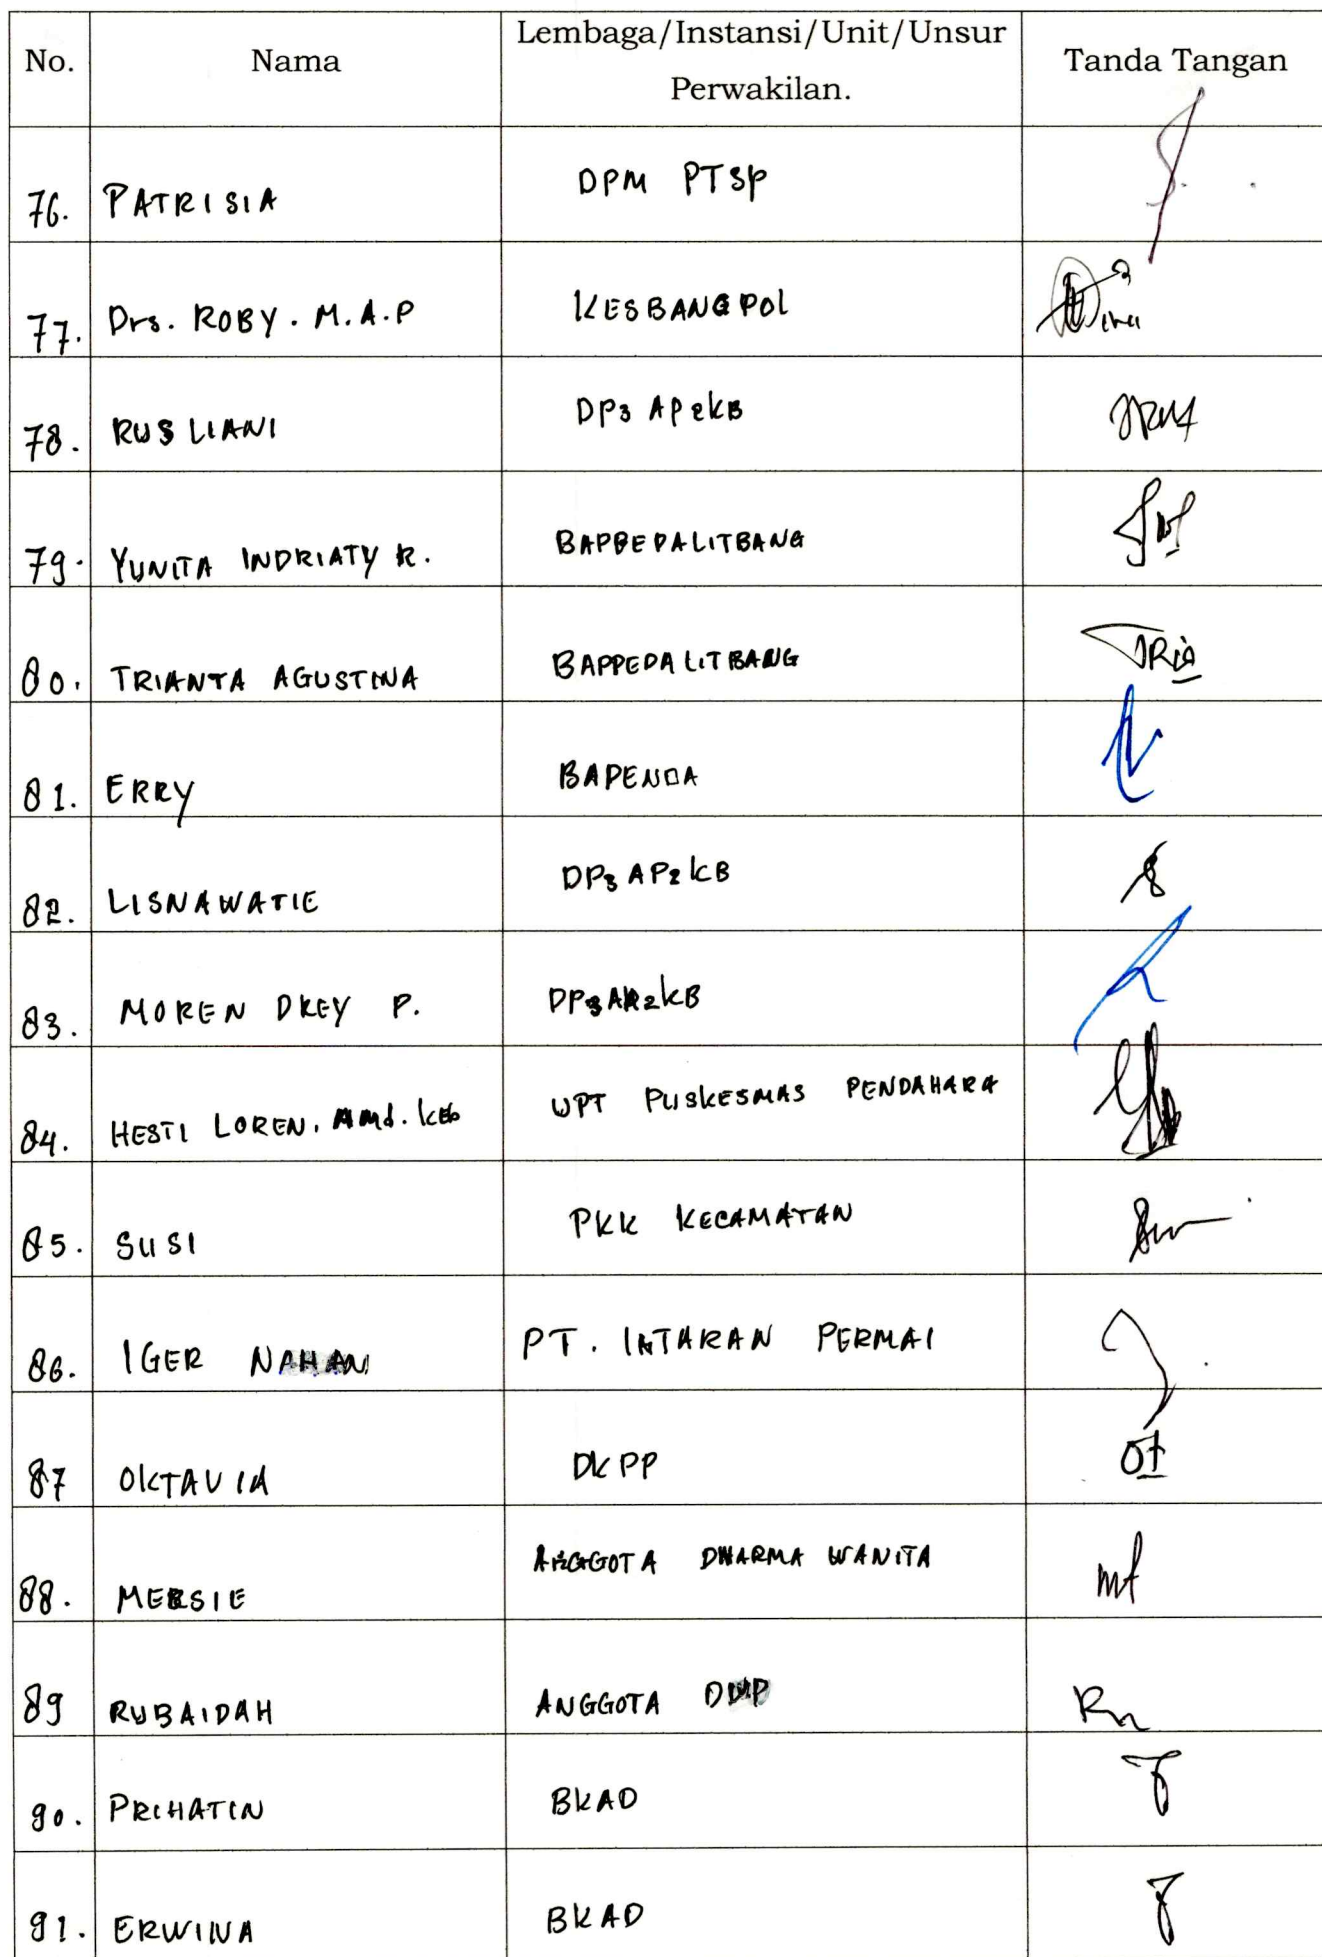 No. Nama Lembaga/Instansi/Unit/Unsur Perwakilan. Tanda Tangan
76. PATRISIA DPM PTSP
77. Drs. ROBY. M.A.P KESBANGPOL
78. RUSLIANI DP3AP2KB
79. YUNITA INDRIATY R. BAPPEDALITBANG
80. TRIANTA AGUSTINA BAPPEDALITBANG
81. ERRY BAPENDA
82. LISNAWATIE DP3AP2KB
83. MOREN DREY P. DP3AP2KB
84. HESTI LOREN. Amd. keb UPT PUSKESMAS PENDAHARA
85. SUSI PKK KECAMATAN
86. IGER NAHAN PT. INTARAN PERMAI
87 OKTAVIA DKPP
88. MERSIE ANGGOTA DHARMA WANITA
89 RUBAIDAH ANGGOTA
90. PRIHATIN BKAD
91. ERWINA BKAD